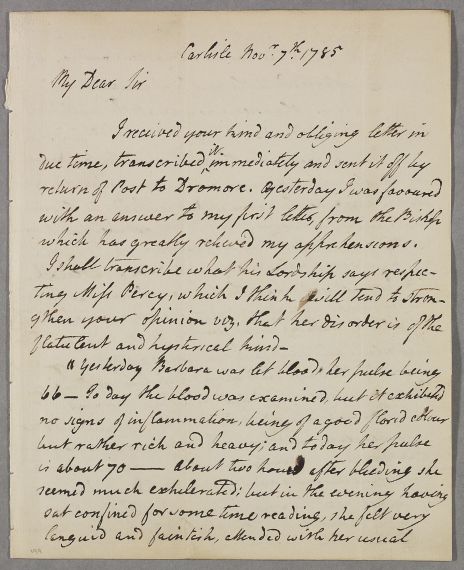 Carlisle Novr. 7th. 1785
My Dear Sir
I received your kind and obliging letter in
due time, transcribed it immediately and sent it off by
return of Post to Dromore. Yesterday I was favoured
with an answer to my first letter, from the Bishop
which has greatly relieved my apprehensions.
I shall transcribe what his Lordship says respec-
ting Miss Percy, which I think will tend to stren-
gthen your opinion viz. that her disorder is of the
flatulent and hysterical kind—
"Yesterday Barbara was let blood, her pulse being
66 — To day the blood was examined, but it exhibited
no signs of inflammation, being of a good florid colour
but rather rich and heavy; and to day her pulse
is about 70 — about two hours after bleeding she
seemed much exhilerated; but in the evening having
sat confined for some time reading, she felt very
languid and faintish, attended with her usual